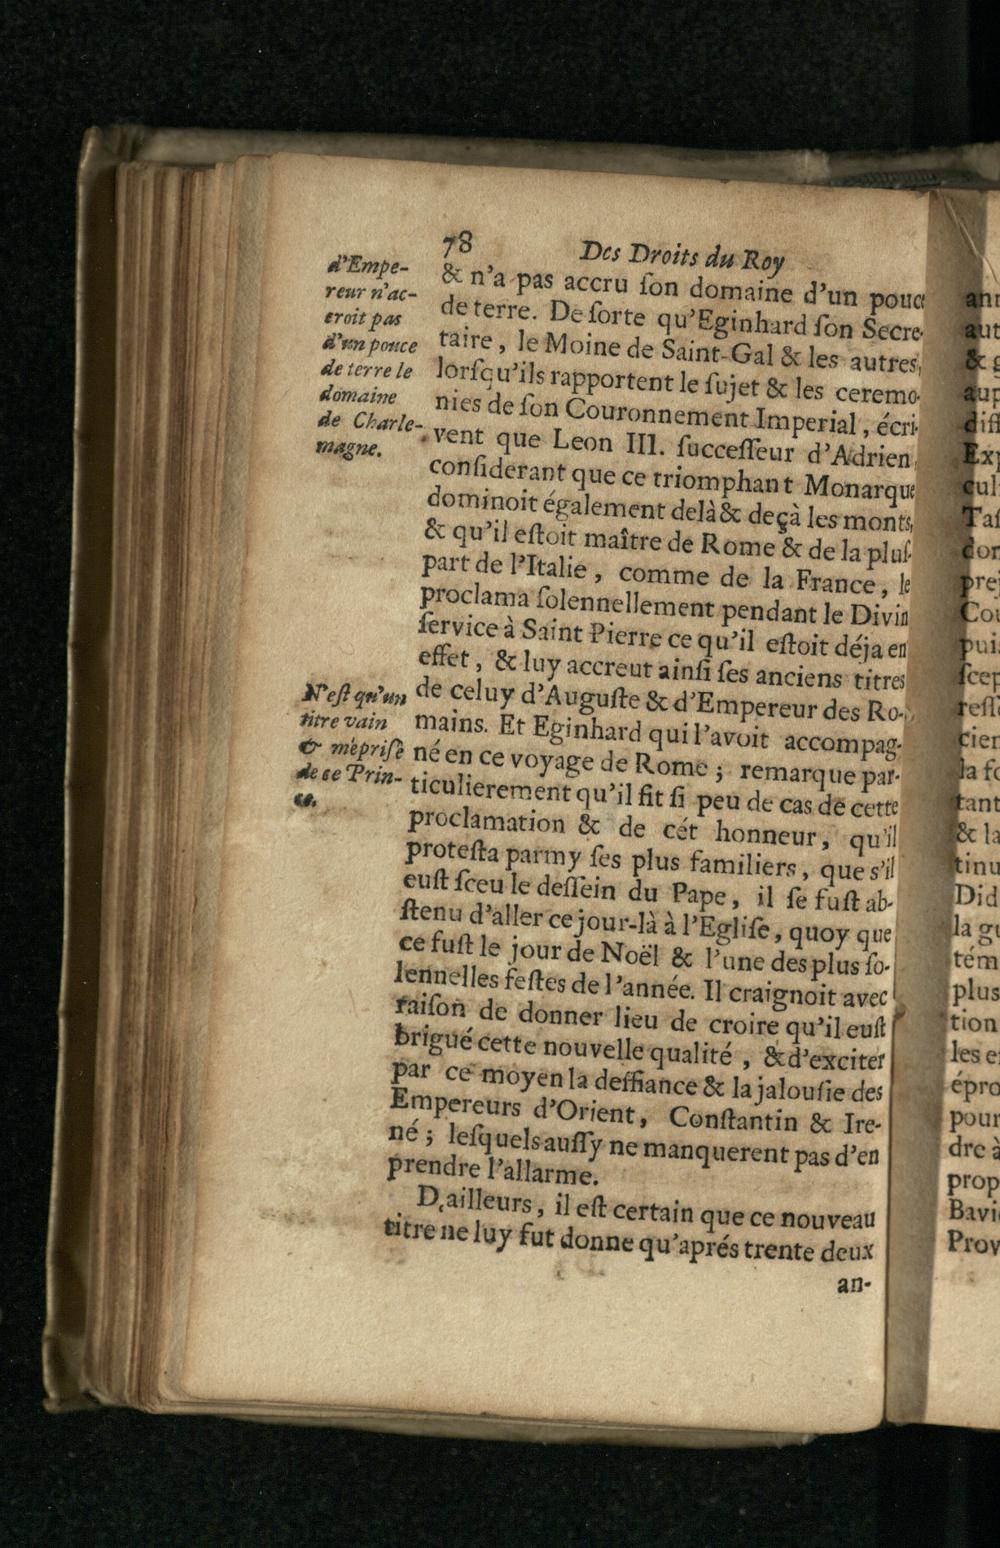 78
Des Droits du Roy
d'Empe-
reur n'ac-
croit pas
d'un pouce
de terre le
domaine
de Charle-
magne.
& n'a pas accru ſon domaine d'un pouce
de terre. De ſorte qu'Eginhard ſon Secre-
taire, le Moine de Saint-Gal & les autres,
lorſqu'ils rapportent le ſujet & les ceremo-
nies de ſon Couronnement Imperial, écri-
vent que Leon III. ſucceſſeur d'Adrien
conſiderant que ce triomphant Monarque
dominoit également delà & deçà les monts,
& qu'il eſtoit maître de Rome & de la pluſ-
part de l'Italie, comme de la France, le
proclama ſolennellement pendant le Divin
ſervice à Saint Pierre ce qu'il eſtoit déja en
effet, & luy accreut ainſi ſes anciens titres
N'eſt qu'un
titre vain
& mépriſé
de ce Prin-
ce.
de celuy d'Auguſte & d'Empereur des Ro-
mains. Et Eginhard qui l'avoit accompag-
né en ce voyage de Rome ; remarque par-
ticulierement qu'il fit ſi peu de cas de cette
proclamation & de cét honneur, qu'il
proteſta parmy ſes plus familiers, que s'il
euſt ſceu le deſſein du Pape, il ſe fuſt ab-
ſtenu d'aller ce jour-là à l'Egliſe, quoy que
ce fuſt le jour de Noël & l'une des plus ſo-
lennelles feſtes de l'année. Il craignoit avec
raiſon de donner lieu de croire qu'il euſt
brigué cette nouvelle qualité, & d'exciter
par ce moyen la deffiance & la jalouſie des
Empereurs d'Orient, Conſtantin & Ire-
né ; leſquels auſſy ne manquerent pas d'en
prendre l'allarme.
D'ailleurs, il eſt certain que ce nouveau
titre ne luy fut donne qu'aprés trente deux
an-
ann
aut
& g
aup
diff
Exp
cul
Taſ
don
prej
Cou
puiſ
ſcep
reſſ
cien
la fo
tant
& la
tinu
Did
la gu
tém
plus
tion
les e
épro
pour
dre à
prop
Bavi
Prov